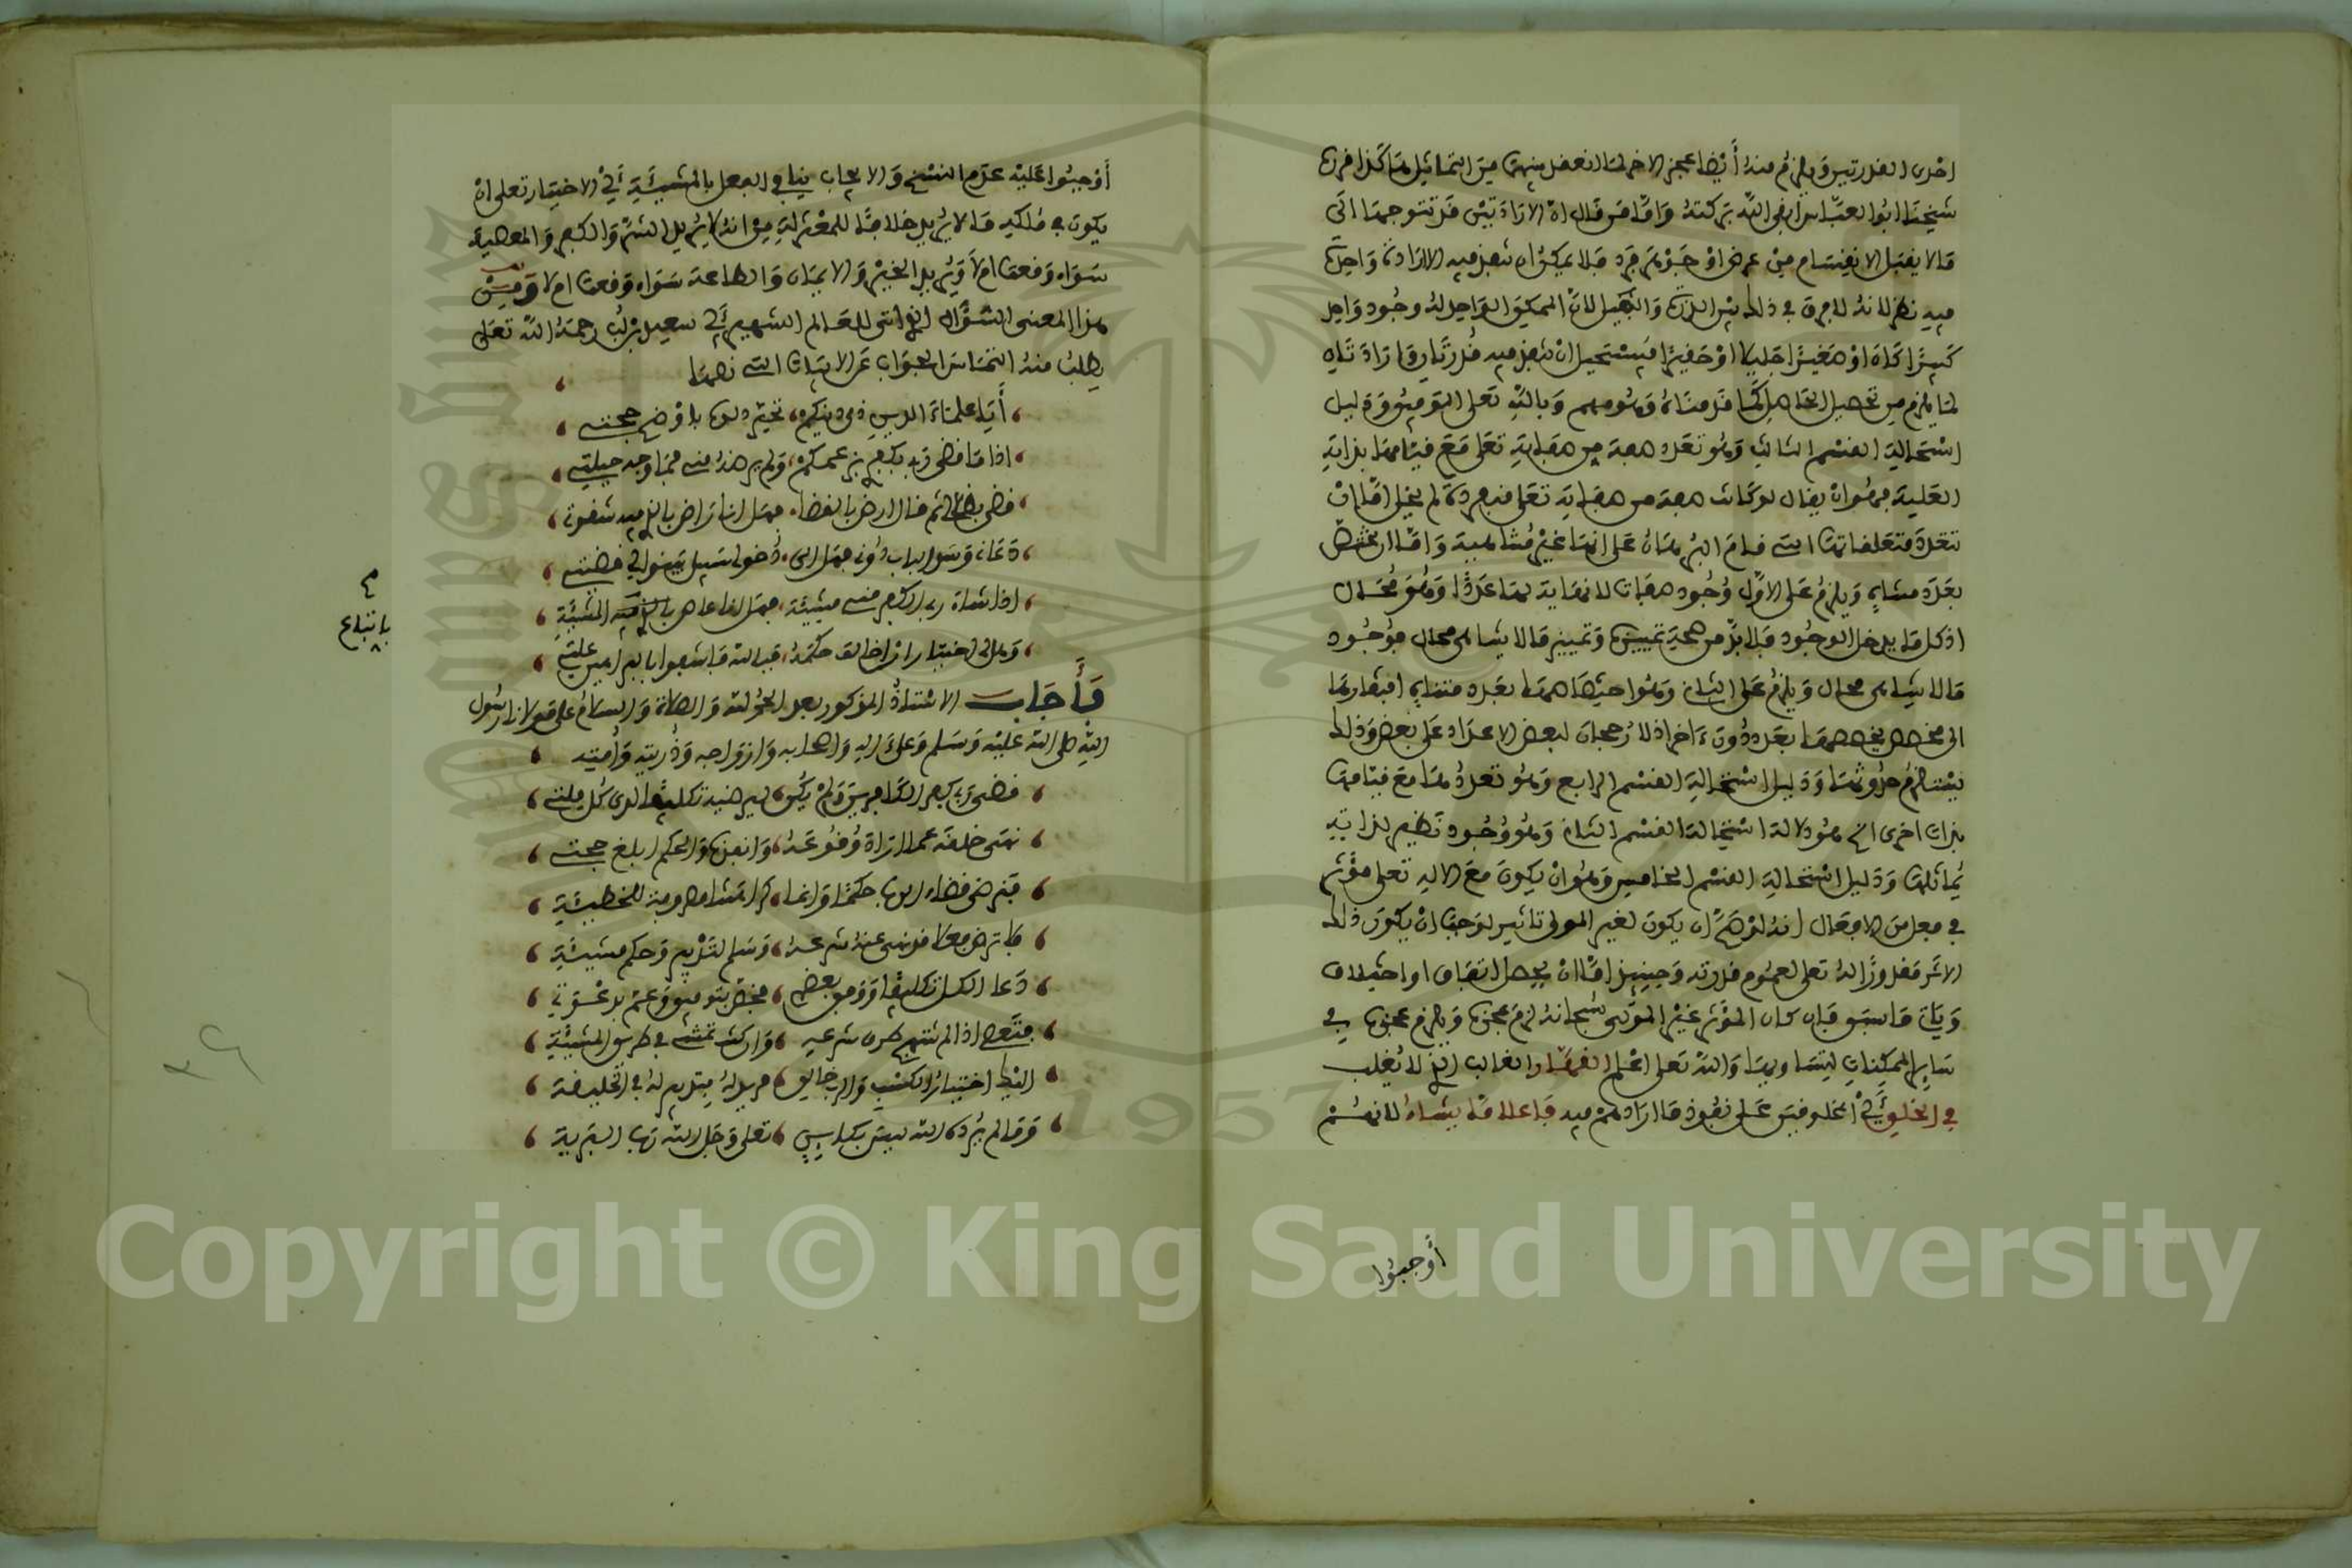 احدى القدرتين ويلزم منه أيضا عجز الاخرى لما انعقد بينهما من التماثل هكذا قرره
شيخنا ابو العباس ابقى الله بركته واما من قال ان الارادتين قد تتوجهما الى
ما لا يقبل الانقسام من عرض او جوهر فرد فلا يمكن ان تنفذ فيه الا ارادة واحدة
فيه نظر لانه لا فرق في ذلك بين الذرة والجبل لان الممكن الواحد له وجود واحد
كبيرا كان او صغيرا جليلا او حقيرا فيستحيل ان تنفذ فيه قدرتان وارادتان
لما يلزم من تحصيل الحاصل كما قدمناه وهو مهم وبالله تعلى التوفيق ودليل
استحالة القسم الثالث وهو تعدد صفة من صفاته تعلى مع قيامها بذاته
العلية فهو ان يقال لو كانت صفة من صفاته تعلى متعددة لم يخل اما ان
تتعدد متعلقاتها التي قام البرهان على انها غير متناهية واما ان تختص
بعدد متناه ويلزم على الاول وجود صفات لا نهاية لها عددا وهو محال
اذ كل ما يدخل الوجود فلا بد من صحة تمييزه وتمييز ما لا يتناهى محال فوجود
ما لا يتناهى محال ويلزم على الثاني وهو اختصاصها بعدد متناه افتقارها
الى مخصص يخصصها بعدد دون ءاخر اذ لا رجحان لبعض الاعداد على بعض وذلك
يستلزم حدوثها ودليل استحالة القسم الرابع وهو تعددها مع قيامها
بذات اخرى الخ هو دلالة استحالة القسم الثاني وهو وجود نظير لذاته
يماثلها ودليل استحالة القسم الخامس وهو ان يكون مع الاله تعلى مؤثر
في فعل من الافعال انه لو صح ان يكون لغير المولى تاثير لوجب ان يكون ذلك
الاثر مقدورا له تعلى لعموم قدرته وحينئذ اما ان يحصل اتفاق او اختلاف
وياتي ما سبق فان كان المؤثر غير المولى سبحانه لزم عجزه ويلزم عجزه في
ساير الممكنات لتساويها والله تعلى اعلم القهار الغالب الذي لا يغلب
في الخلق أي المخلوقين على نفوذ ما اراد لهم فيه فاعلا ما يشاء لانهم
أوجبوا
أوجبوا عليه عدم النسخ والايجاب ينافي الفعل بالمشيئة أي الاختيار تعلى ان
يكون في ملكه ما لا يريد خلافا للمعتزلة من انه لا يريد الشر والكفر والمعصية
سواء وقعا ام لا ويريد الخير والايمان والطاعة سواء وقعت ام لا ومن
هذا المعنى السؤال الذي اتى للعالم الشهير أبي سعيد بن لب رحمه الله تعلى
يطلب منه التماس الجواب عن الابيات التي نصها
أيا علماء الدين ذمي دينكم تحير دلوه باوضح حجتي
اذا ما قضى ربي بكفري بزعمكم ولم يرضه مني فما وجه حيلتي
قضى بضلالي ثم قال ارض بالقضا فهل انا راض بالذي فيه شقوتي
دعاني وسد الباب دوني فهل الى دخولي سبيل بينوا لي قضيتي
اذا شاء ربي الكفر مني مشيئة فهل انا عاص باتباع المشيئة
وهل لي اختيار ان اخالف حكمه فبالله فاشفوا بالبراهين علتي
باتباع
فأجاب الاستاذ المذكور بعد الحمد لله والصلاة والسلام على مولانا رسول
الله صلى الله عليه وسلم وعلى اله واصحابه وازواجه وذريته وأمته
قضى رب كفر الكافرين ولم يكن ليرضيه تكليفا لدى كل ملتي
نهى خلقه عما اراد وقوعه وانفاذه والحكم ابلغ حجتي
فنرضى قضاء الرب حكما وانما كراهتنا مصروفة للخطيئة
فلا ترض فعلا قد نهى عنه شرعه وسلم لتدبير وحكم مشيئة
دعا الكل تكليفا ووفق بعضهم فخص بتوفيق وعم بدعوتي
فتعصي اذا لم تنتهج طرق شرعه وان كنت تمشي في طريق المشيئة
اليك اختيار الكسب والرب خالق مريد له بتدبير له في الخليقة
وما لم يرده الله ليس بكاين تعلى وجل الله رب البرية